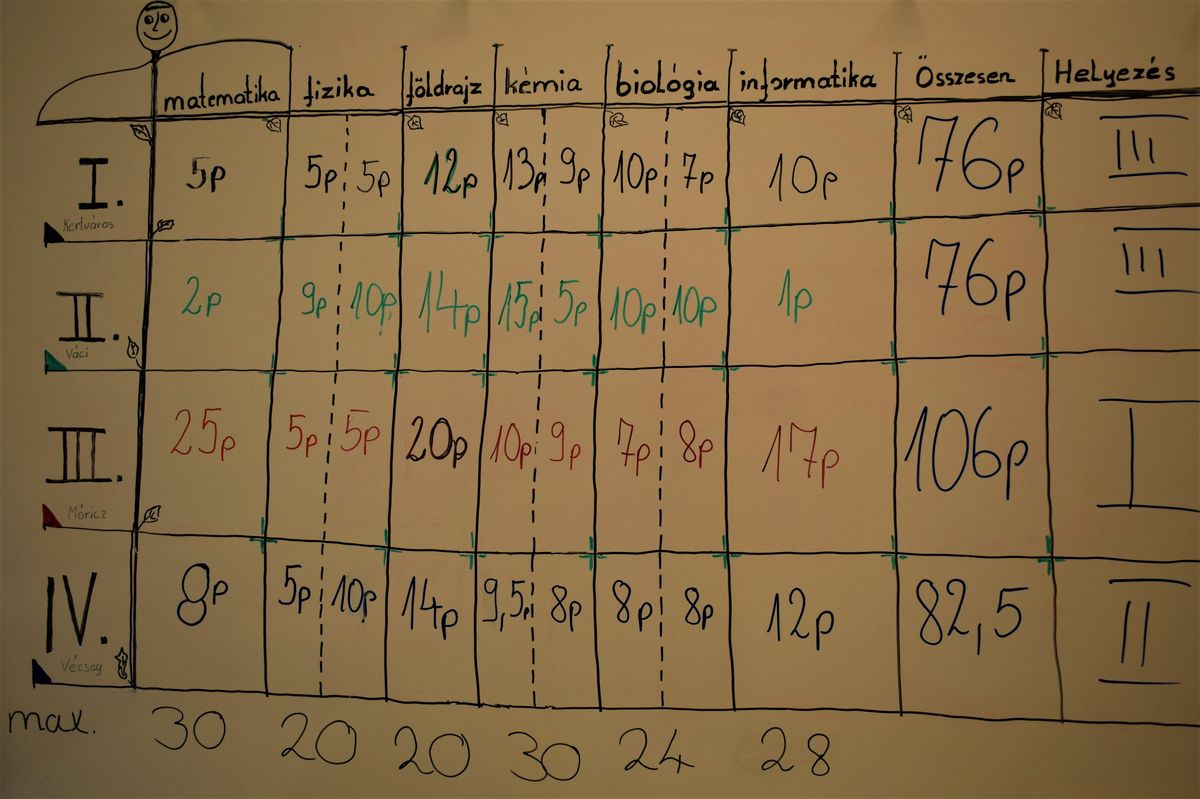 matematika fizika földrajz kémia biológia informatika Összesen Helyezés
I. 5p 5p 5p 12p 13p 9p 10p 7p 10p 76p III
Kertváros
II. 2p 9p 10p 14p 15p 5p 10p 10p 1p 76p III
Váci
III. 25p 5p 5p 20p 10p 9p 7p 8p 17p 106p I
Móricz
IV. 8p 5p 10p 14p 9,5p 8p 8p 8p 12p 82,5 II
Vécsey
max. 30 20 20 30 24 28